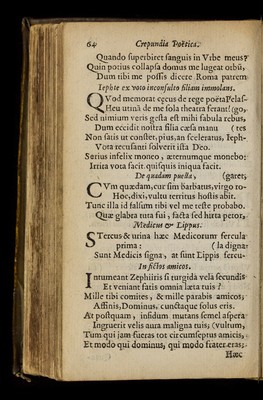 64 Crepundia Poëtica.
Quando superbiret sanguis in Vrbe meus?
Quin potius collapsa domus me lugeat orbū,
Dum tibi me possis dicere Roma patrem
Iephte ex voto inconsulto filiam immolans.
QVod memorat cęcus de rege poëta Pelas-
Heu utinā de me sola theatra ferant! (go,
Sed nimium veris gesta est mihi fabula rebus,
Dum eccidit nostra filia cæsa manu (tes
Non satis ut constet, pius, an sceleratus, Ieph-
Vota recusansi solverit ista Deo.
Serius infelix moneo, æternumque monebo:
Irrita vota facit, quisquis iniqua facit.
De quadam puella. (garet,
CVm quædam, cur sim barbatus, virgo ro-
Hoc, dixi, vultu territus hostis abit.
Tunc illa id falsum tibi vel me teste probabo.
Quæ glabra tota fui, facta sed hirta petor.
Medicus & Lippus.
STercus & urina hæc Medicorum fercula
prima: (la digna
Sunt Medicis signa, at sunt Lippis fercu-
In fictos amicos.
INtumeant Zephiriis si turgida vela secundis
Et veniant fatis omnia læta tuis?
Mille tibi comites, & mille parabis amicos;
Affinis, Dominus, cunctaque solus eris.
At postquam, infidum mutans semel aspera
Ingruerit velis aura maligna tuis; (vultum,
Tum qui jam fueras tot circumseptus amicis,
Et modo qui dominus, qui modo frater eras;
Hæc